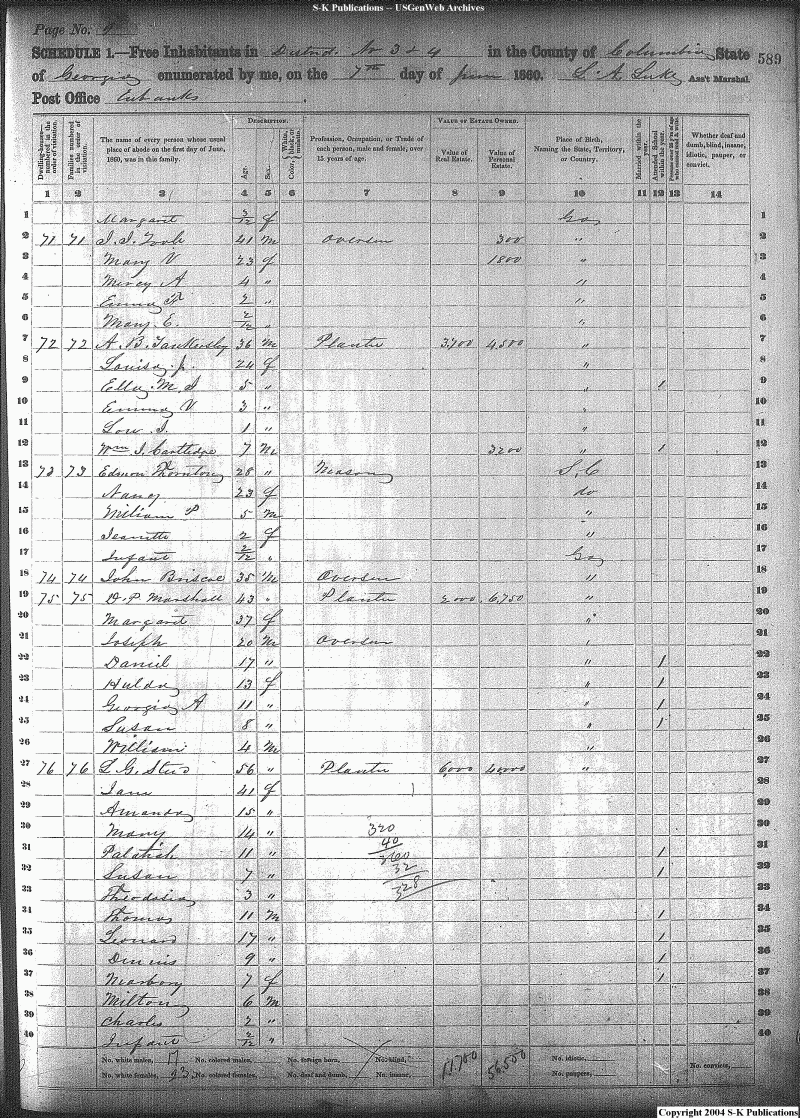 S-K Publications -- USGenWeb Archives
Page No.
SCHEDULE 1.—Free Inhabitants in District No 3 & 4 in the County of Columbia State 589
of Georgia enumerated by me, on the 7th day of June 1860. Ass't Marshal.
Post Office Eubanks
DESCRIPTION. VALUE OF ESTATE OWNED.
Dwelling-houses—numbered in the order of visitation. Families numbered in the order of visitation. The name of every person whose usual place of abode on the first day of June, 1860, was in this family. Age. Sex. Color, White, black, or mulatto. Profession, Occupation, or Trade of each person, male and female, over 15 years of age. Value of Real Estate. Value of Personal Estate. Place of Birth, Naming the State, Territory, or Country. Married within the year. Attended School within the year. Whether deaf and dumb, blind, insane, idiotic, pauper, or convict.
1 2 3 4 5 6 7 8 9 10 11 12 13 14
1 Margaret f Ga 1
2 71 71 41 m Overseer 300 " 2
3 Mary V 23 f 1800 " 3
4 Mercy A 4 " " 4
5 Emma 2 " " 5
6 Mary E. 2/12 " " 6
7 72 72 A. B. Tankersley 36 m Planter 3,700 4,500 " 7
8 Louisa 24 f " 8
9 Ella M. 5 " " 1 9
10 Emma V 3 " " 10
11 1 " " 11
12 Wm J. Cartledge 7 m 3200 " 1 12
13 73 73 Edmon Thornton 28 " Mason S, C 13
14 Nancy 23 f do 14
15 William P 5 m " 15
16 Jeanette 2 f " 16
17 Infant 2/12 " Ga 17
18 74 74 John Briscoe 35 m Overseer " 18
19 75 75 D. P. Marshall 43 " Planter 2000 6,750 " 19
20 Margaret 37 f " 20
21 Joseph 20 m Overseer " 21
22 Daniel 17 " " 1 22
23 Hulda 13 f " 1 23
24 Georgia A 11 " " 1 24
25 Susan 8 " " 1 25
26 William 4 m " 26
27 76 76 56 " Planter 6,000 40000 " 27
28 Jane 41 f 28
29 Amanda 15 " 29
30 Mary 14 " 320 30
31 11 " 40 1 31
32 Susan 7 " 32 1 32
33 Theodosia 3 " 328 33
34 Thomas 11 m 1 34
35 Leonard 17 " 1 35
36 Dennis 9 " 1 36
37 Marbory 7 f 1 37
38 Milton 6 m 38
39 Charles 2 " 39
40 Infant 2/12 " 40
No. white males, 17 No. colored males, No. foreign born, No. blind, 11,700 56,500 No. idiotic, No. convicts,
No. white females, 23 No. colored females, No. deaf and dumb, No. insane, No. paupers,
Copyright 2004 S-K Publications